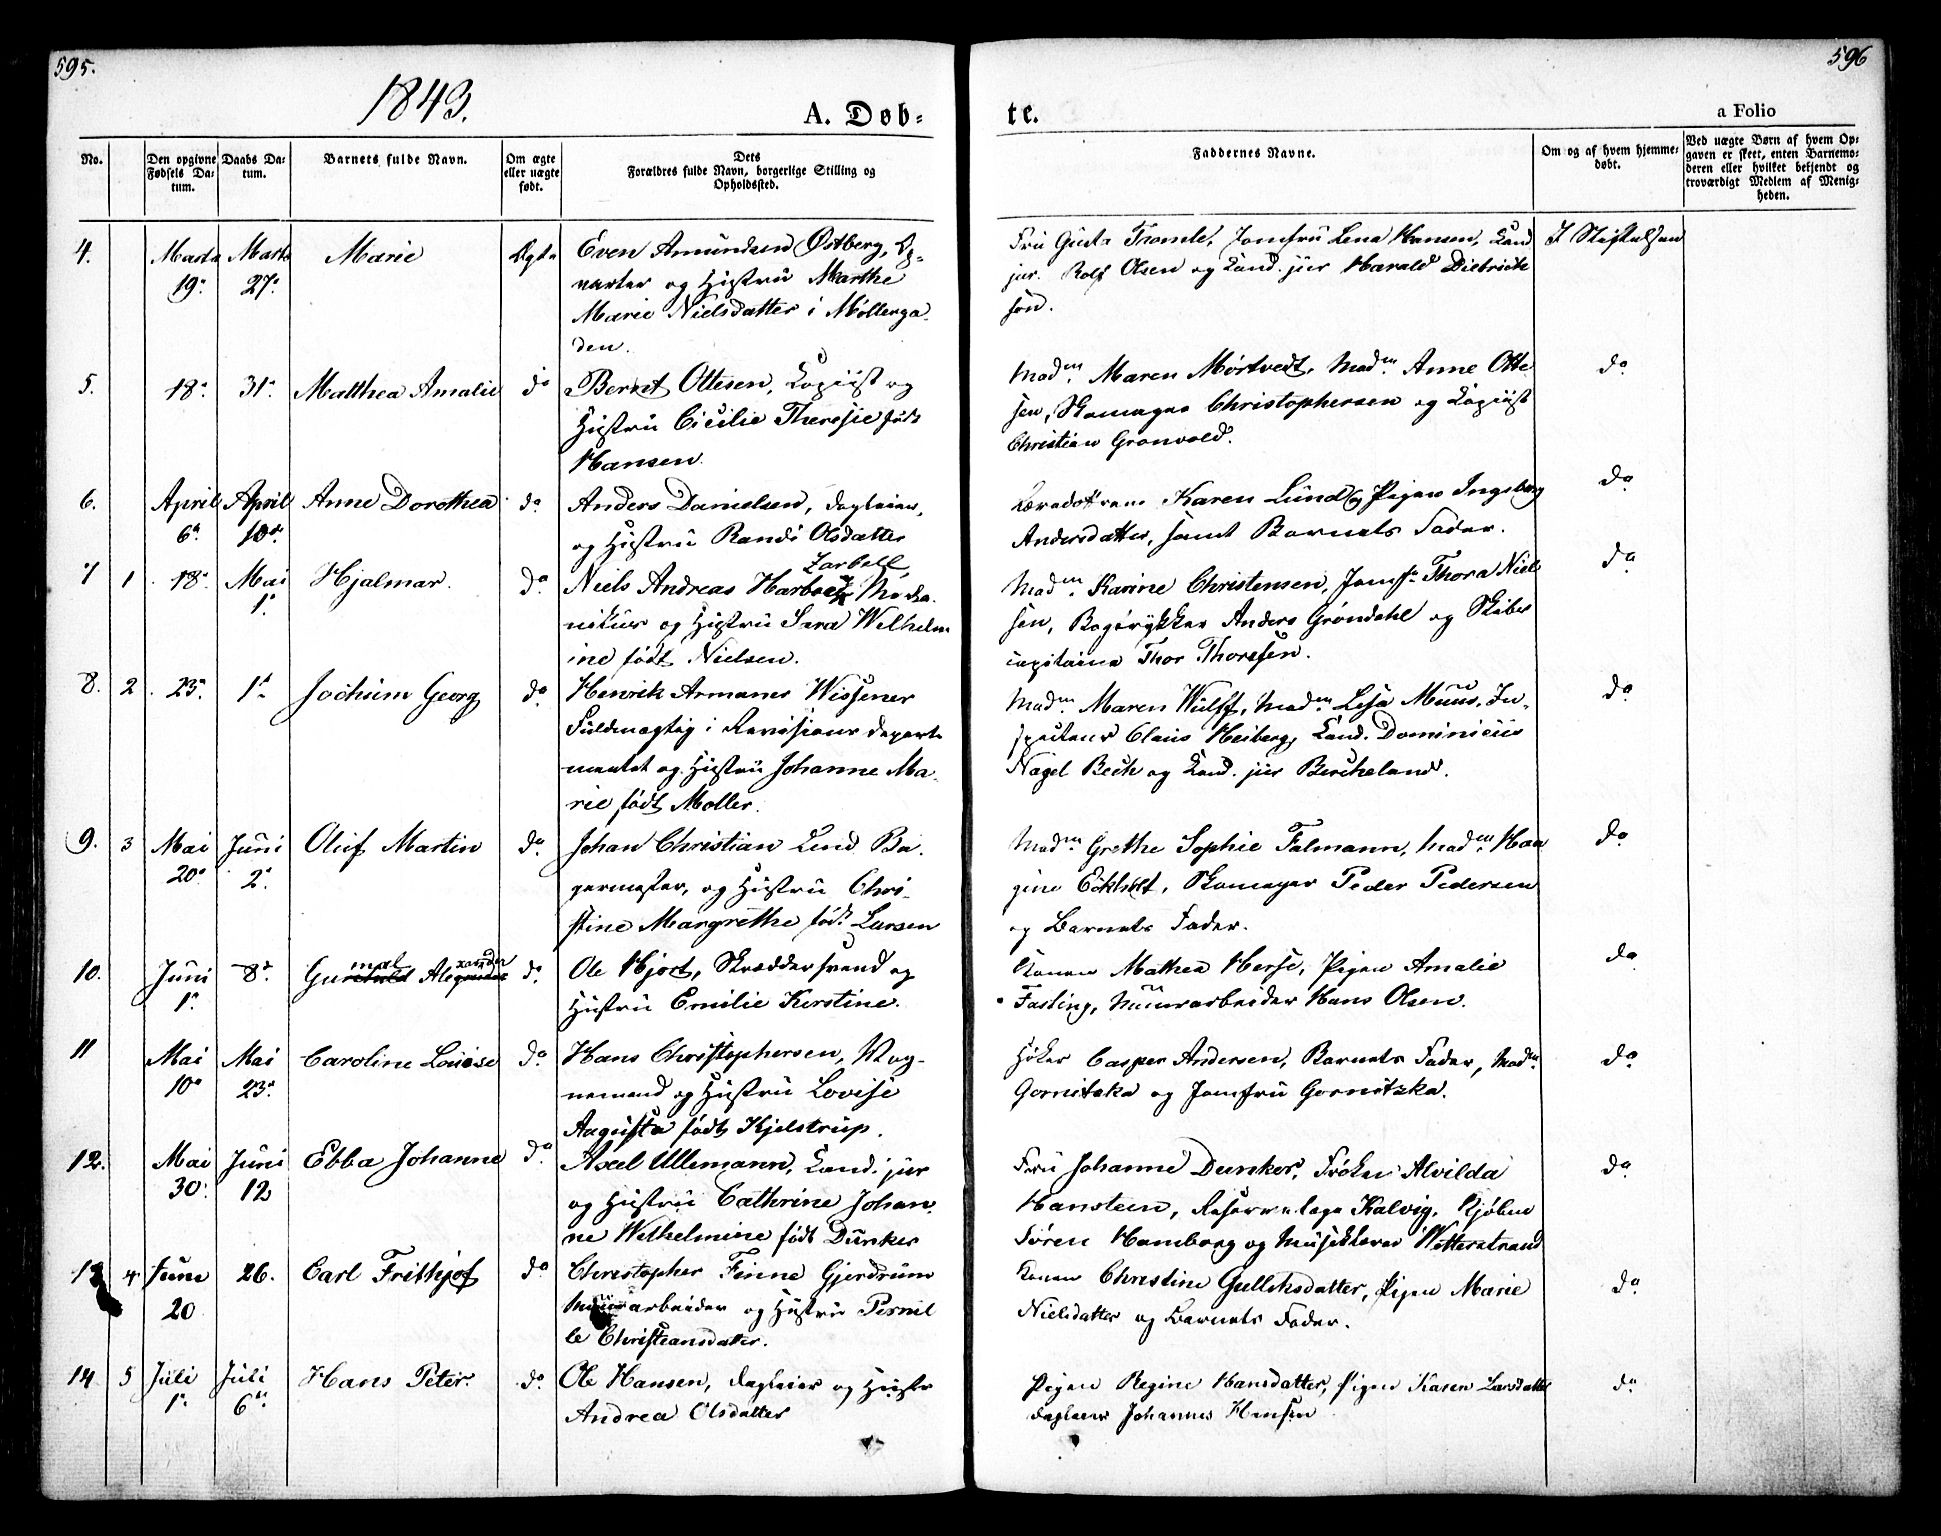 595.
596
1843.
A. Døb-
te.
a Folio
No.
Den opgivne Fødsels Da-tum.
Daabs Da-tum.
Barnets fulde Navn.
Om ægte eller uægte født.
Dets Forældres fulde Navn, borgerlige Stilling og Opholdssted.
Faddernes Navne.
Om og af hvem hjemme-døbt.
Ved uægte Børn af hvem Op-gaven er skeet, enten Barnemo-deren eller hvilket bekjendt og troværdigt Medlem af Menig-heden.
4. Marts 19. Marts 27. Marie Ægte
Even Amundsen Østberg, Op-
varter og Hustru Marthe
Marie Nielsdatter i Møllerga-
den.
Fru Tromle, Jomfru Lena Hansen, Cand
jur. Rolf Olsen og Cand. jur Harald Dietrich
son.
I Stiftelsen
5. 18. 31. Matthea Amalie do
Bernt Ottesen, Copiist og
Hustru Cicilie Theresie født
Hansen.
Madm. Maren Mørtvedt, Madm. Anne Otte
sen, Skomager Christophersen og Copiist
Christian Grønvold.
do
6. April 6. April 10. Anne Dorothea do.
Anders Danielsen, Dagleier,
og Hustru Randi Olsdatter
Karen Lund og Pigen Ingeborg
Andersdatter, samt Barnets Fader.
do
7 1 18. Mai 1. Hjalmar. do.
Zarbell,
Niels Andreas Harboe, Mecha-
nikus og Hustru Sara Welhelm
ine født Nielsen.
Madm. Karine Christensen, Jomf. Thora Niel
sen, Bogtrykker Anders Grøndahl og Skibs
capitaine Thor Thoresen.
do
8. 2 23. 1. Jochum Georg do.
Henrik Armaner Wissener
Fuldmægtig i Revisions Departe
mentet og Hustru Johanne Ma-
rie født Møller.
Madm. Maren Wulff, Madm. Lesa Muus, In-
specteur Claus Heiberg, Cand. Dominicus
Nagel Bech og Cand. jur Bercheland.
do
9. 3 Mai 20. Juni 2. Oluf Martin do.
Johan Christian Lind Ba-
germester, og Hustru Chri-
stine Margrethe født Larsen
Madm. Grethe Sophie Falmann, Madm. Han
gine Eckholt, Skomager Peder Pedersen
og Barnets Fader.
do
10. Juni 1. 8. Gumal Alexander do.
Ole Hjort, Skræddersvend og
Hustru Emilie Kirstine.
Konen Mathea Herse, Pigen Amalie
Fasting, Muurarbeider Hans Olsen.
do
11 Mai 10. Mai 23. Caroline Louise do.
Hans Christophersen, Vog-
nemand og Hustru Lovise
Augusta født Kjelstrup.
Høker Casper Andersen, Barnets Fader, Madm.
Gornitzka og Jomfru Gornitzka.
do
12. Mai 30. Juni 12 Ebba Johanne do.
Axel Ullemann, Cand. jur
og Hustru Cathrine Johan
ne Welhelmine født Dunker
Fru Johanne Dunker, Frøken Alvilda
Hansteen, Reservelæge Kalvig, Kjøbm
Søren Homborg og Musiklærer Wetterstrand
do
13 4 Juni 20 26. Carl Frithjof do
Christopher Finne Gjerdrum
Muurarbeider og Hustru Pernil
le Christiansdatter.
Konen Christine Gullchsdatter, Pigen Marie
Nielsdatter og Barnets Fader.
do.
14 5 Juli 1. Juli 6. Hans Peter. do.
Ole Hansen, Dagleier og Hustr
Andrea Olsdatter
Pigen Regine Hansdatter, Pigen Karen Larsdatter
Dagleier Johannes Hansen
do